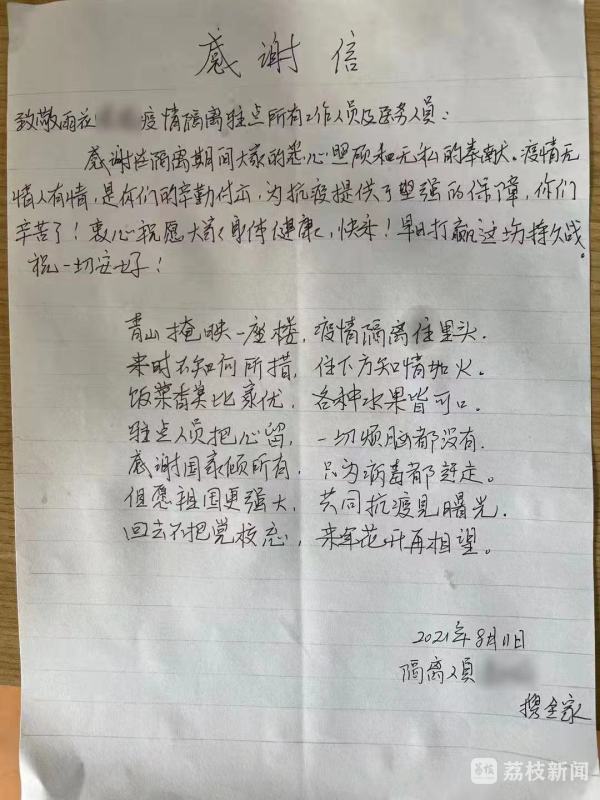 感谢信
致敬雨花 疫情隔离驻点所有工作人员及医务人员：
感谢在隔离期间大家的悉心照顾和无私的奉献。疫情无
情人有情，是你们的辛勤付出，为抗疫提供了坚强的保障，你们
辛苦了！衷心祝愿大家身体健康，快乐！早日打赢这场持久战。
祝一切安好！
青山掩映一座楼，疫情隔离住里头.
来时不知何所措，住下方知情如火。
饭菜香美比家优，各种水果皆可口.
驻点人员把心留，一切烦脑都没有.
感谢国家倾所有，只为病毒都赶走。
但愿祖国更强大，共同抗疫见曙光.
回去不把党校忘，来年花开再相望。
2021年8月11日
隔离人员
携全家
荔枝新闻